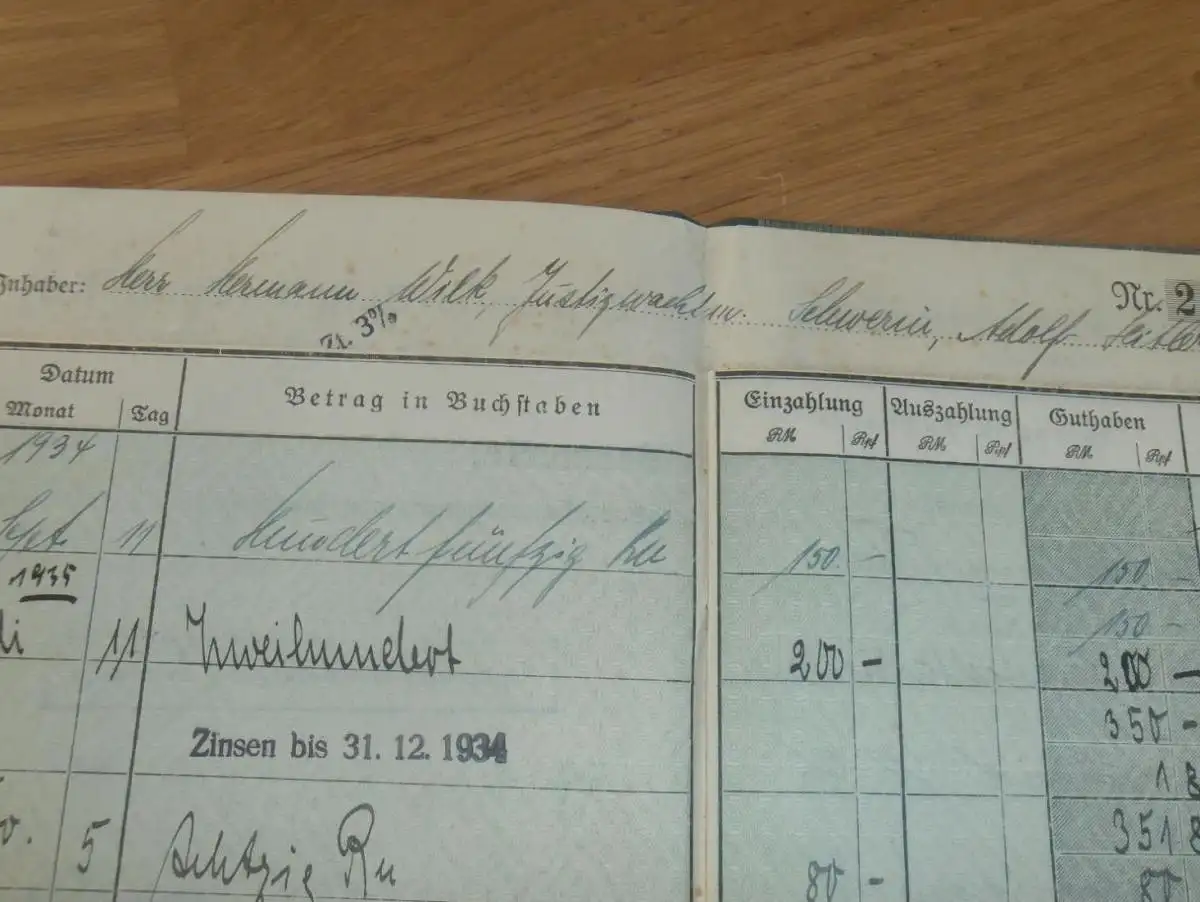 Inhaber: Herr Hermann Wilk, Justizwachtm. Schwerin, Adolf Hitler
Nr. 2
Zs. 3%
Datum
Monat Tag Betrag in Buchstaben Einzahlung Auszahlung Guthaben
RM Rpf RM Rpf RM Rpf
1934
Sept. 11 Hundertfünfzig 150.— 150 —
1935 150 —
11 Zweihundert 200 — 200 —
350 —
Zinsen bis 31. 12. 1934 1 8
351 8
5 Achtzig 80 — 80